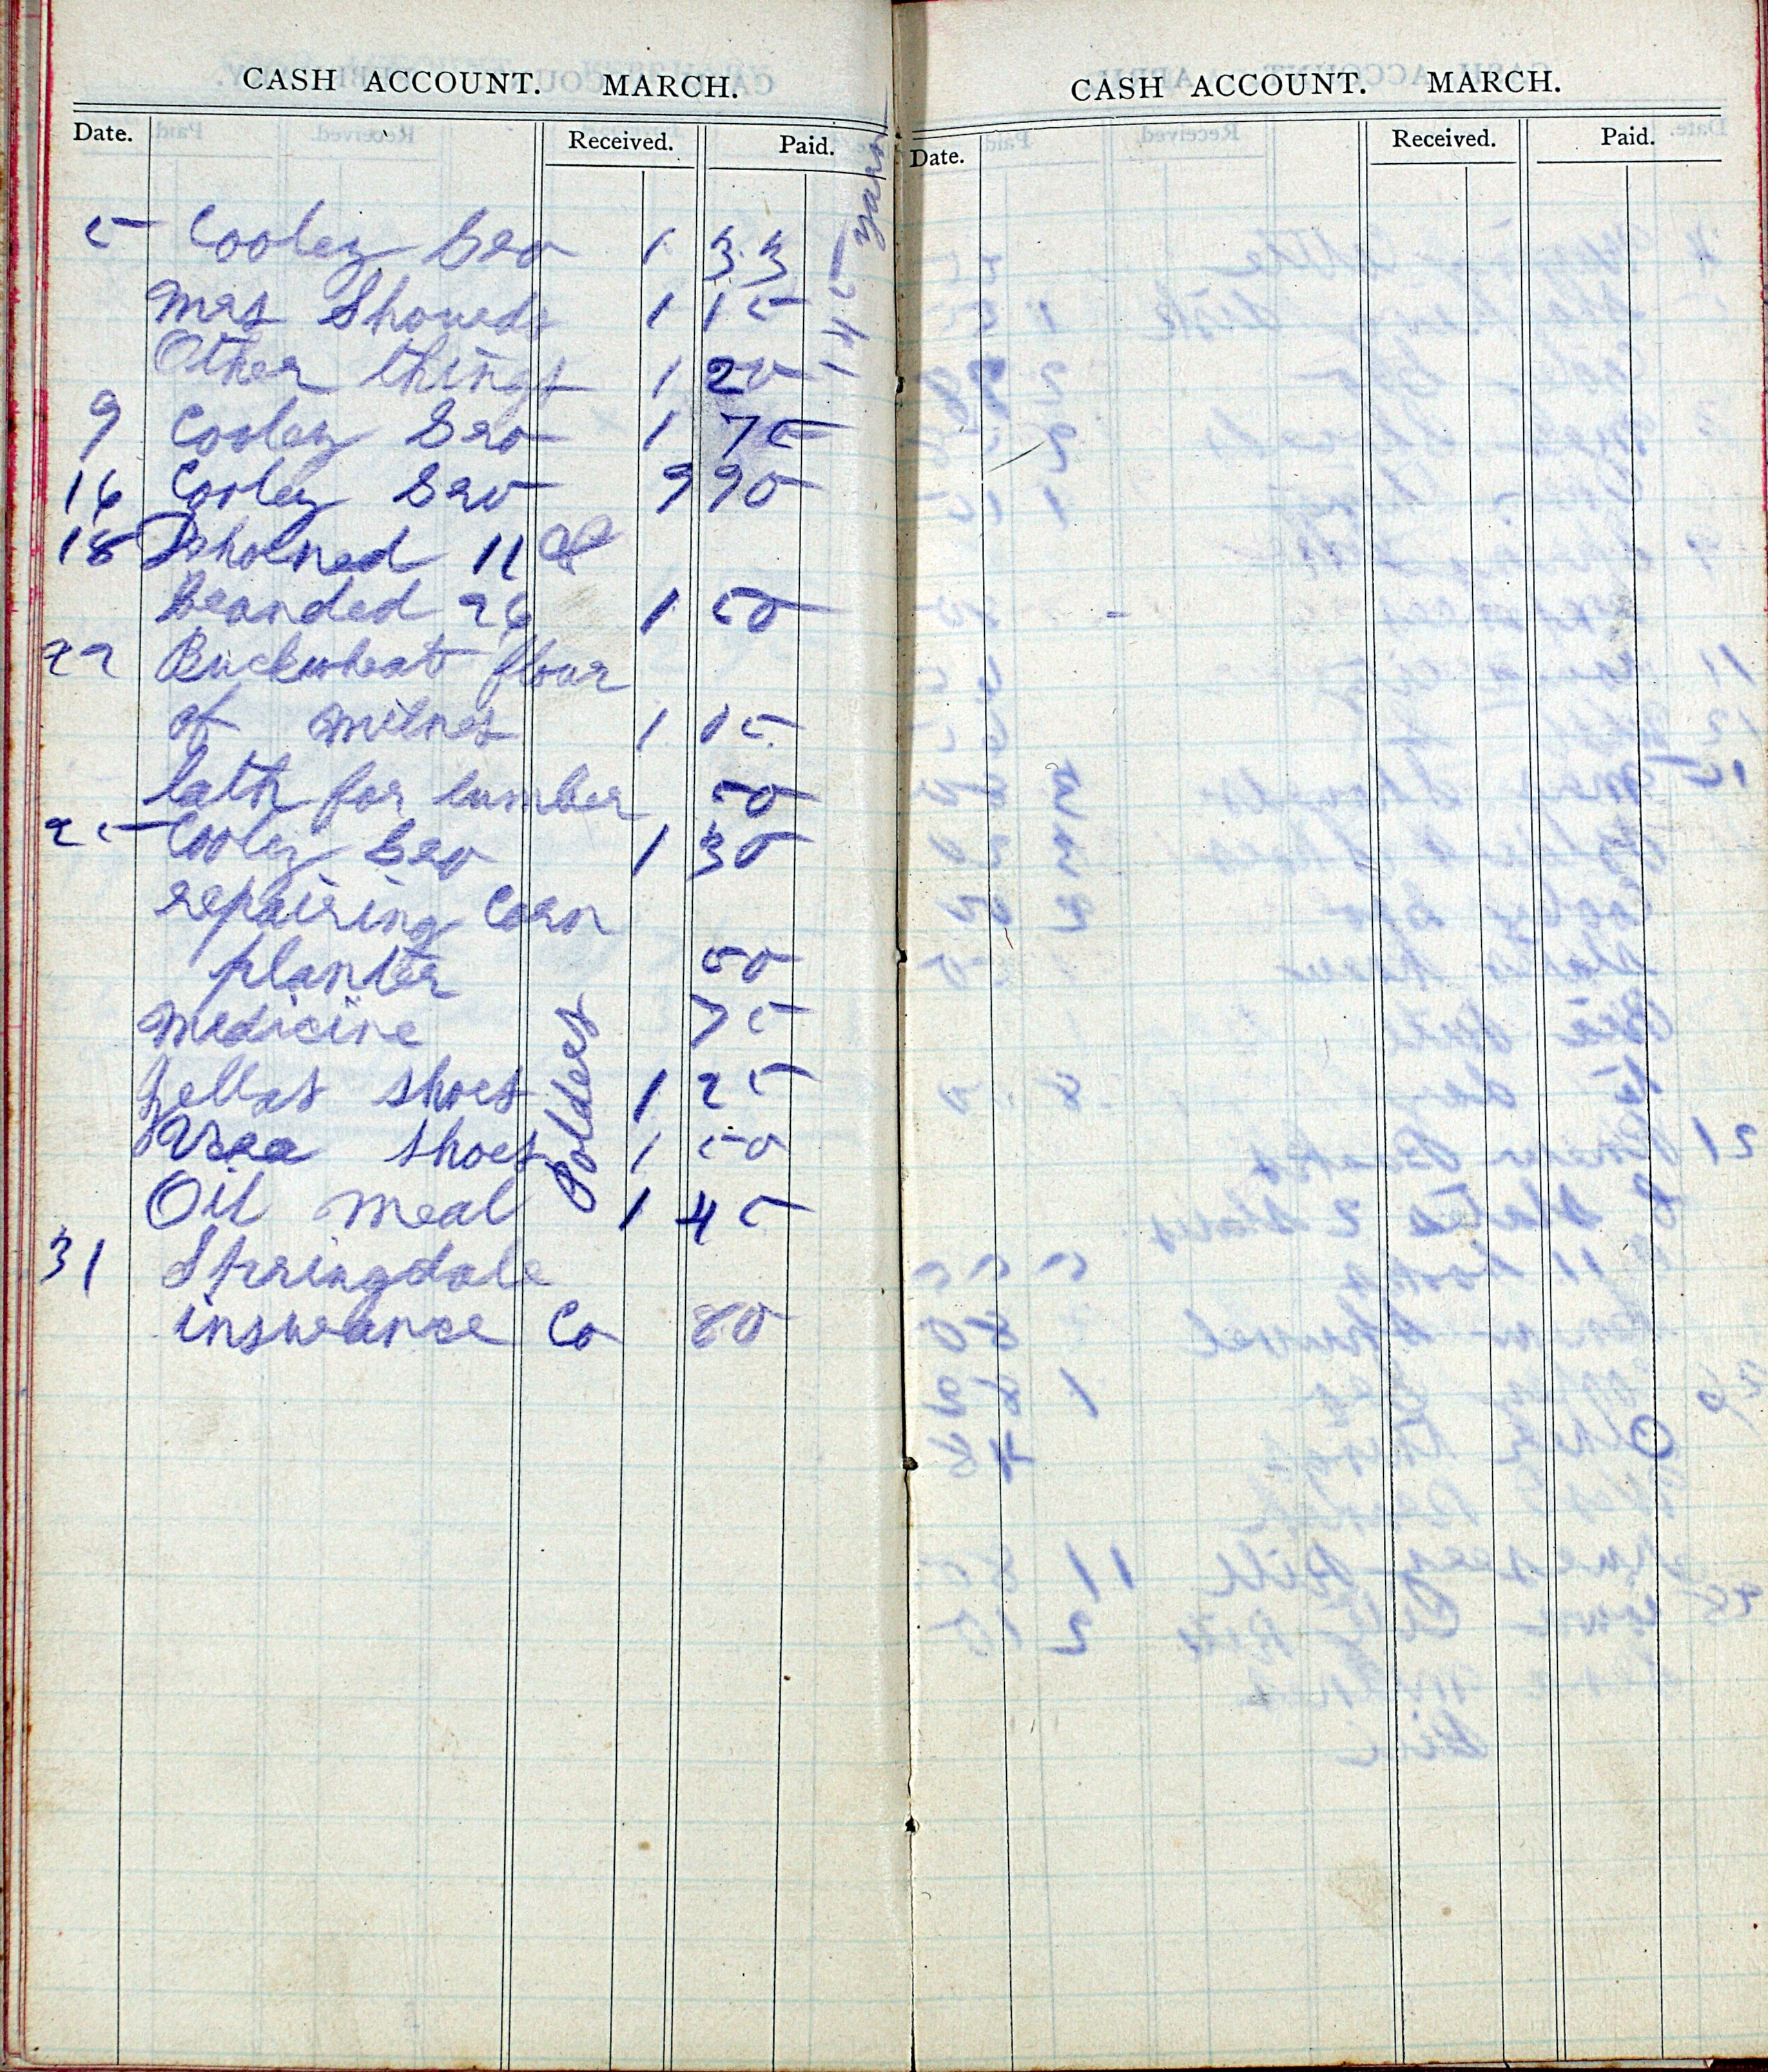 CASH ACCOUNT. MARCH.
Date. Received. Paid.
5 Cooley Gro 1 33
Mrs Showeds 1 15
Other things 1 20
9 Cooley Gro 1 75
16 Cooley Gro 9 90
18 Dehorned 11
Branded 26 1 50
22 Buckwheat flour
of Milnes 1 05
lath for lumber 50
25 Cooley Gro 1 30
repairing Corn
planter 50
Medicine 75
Zellas shoes 1 25
Vera shoes 1 50
Oil meal 1 45
31 Springdale
insurance Co 80
yarn
CASH ACCOUNT. MARCH.
Date. Received. Paid.